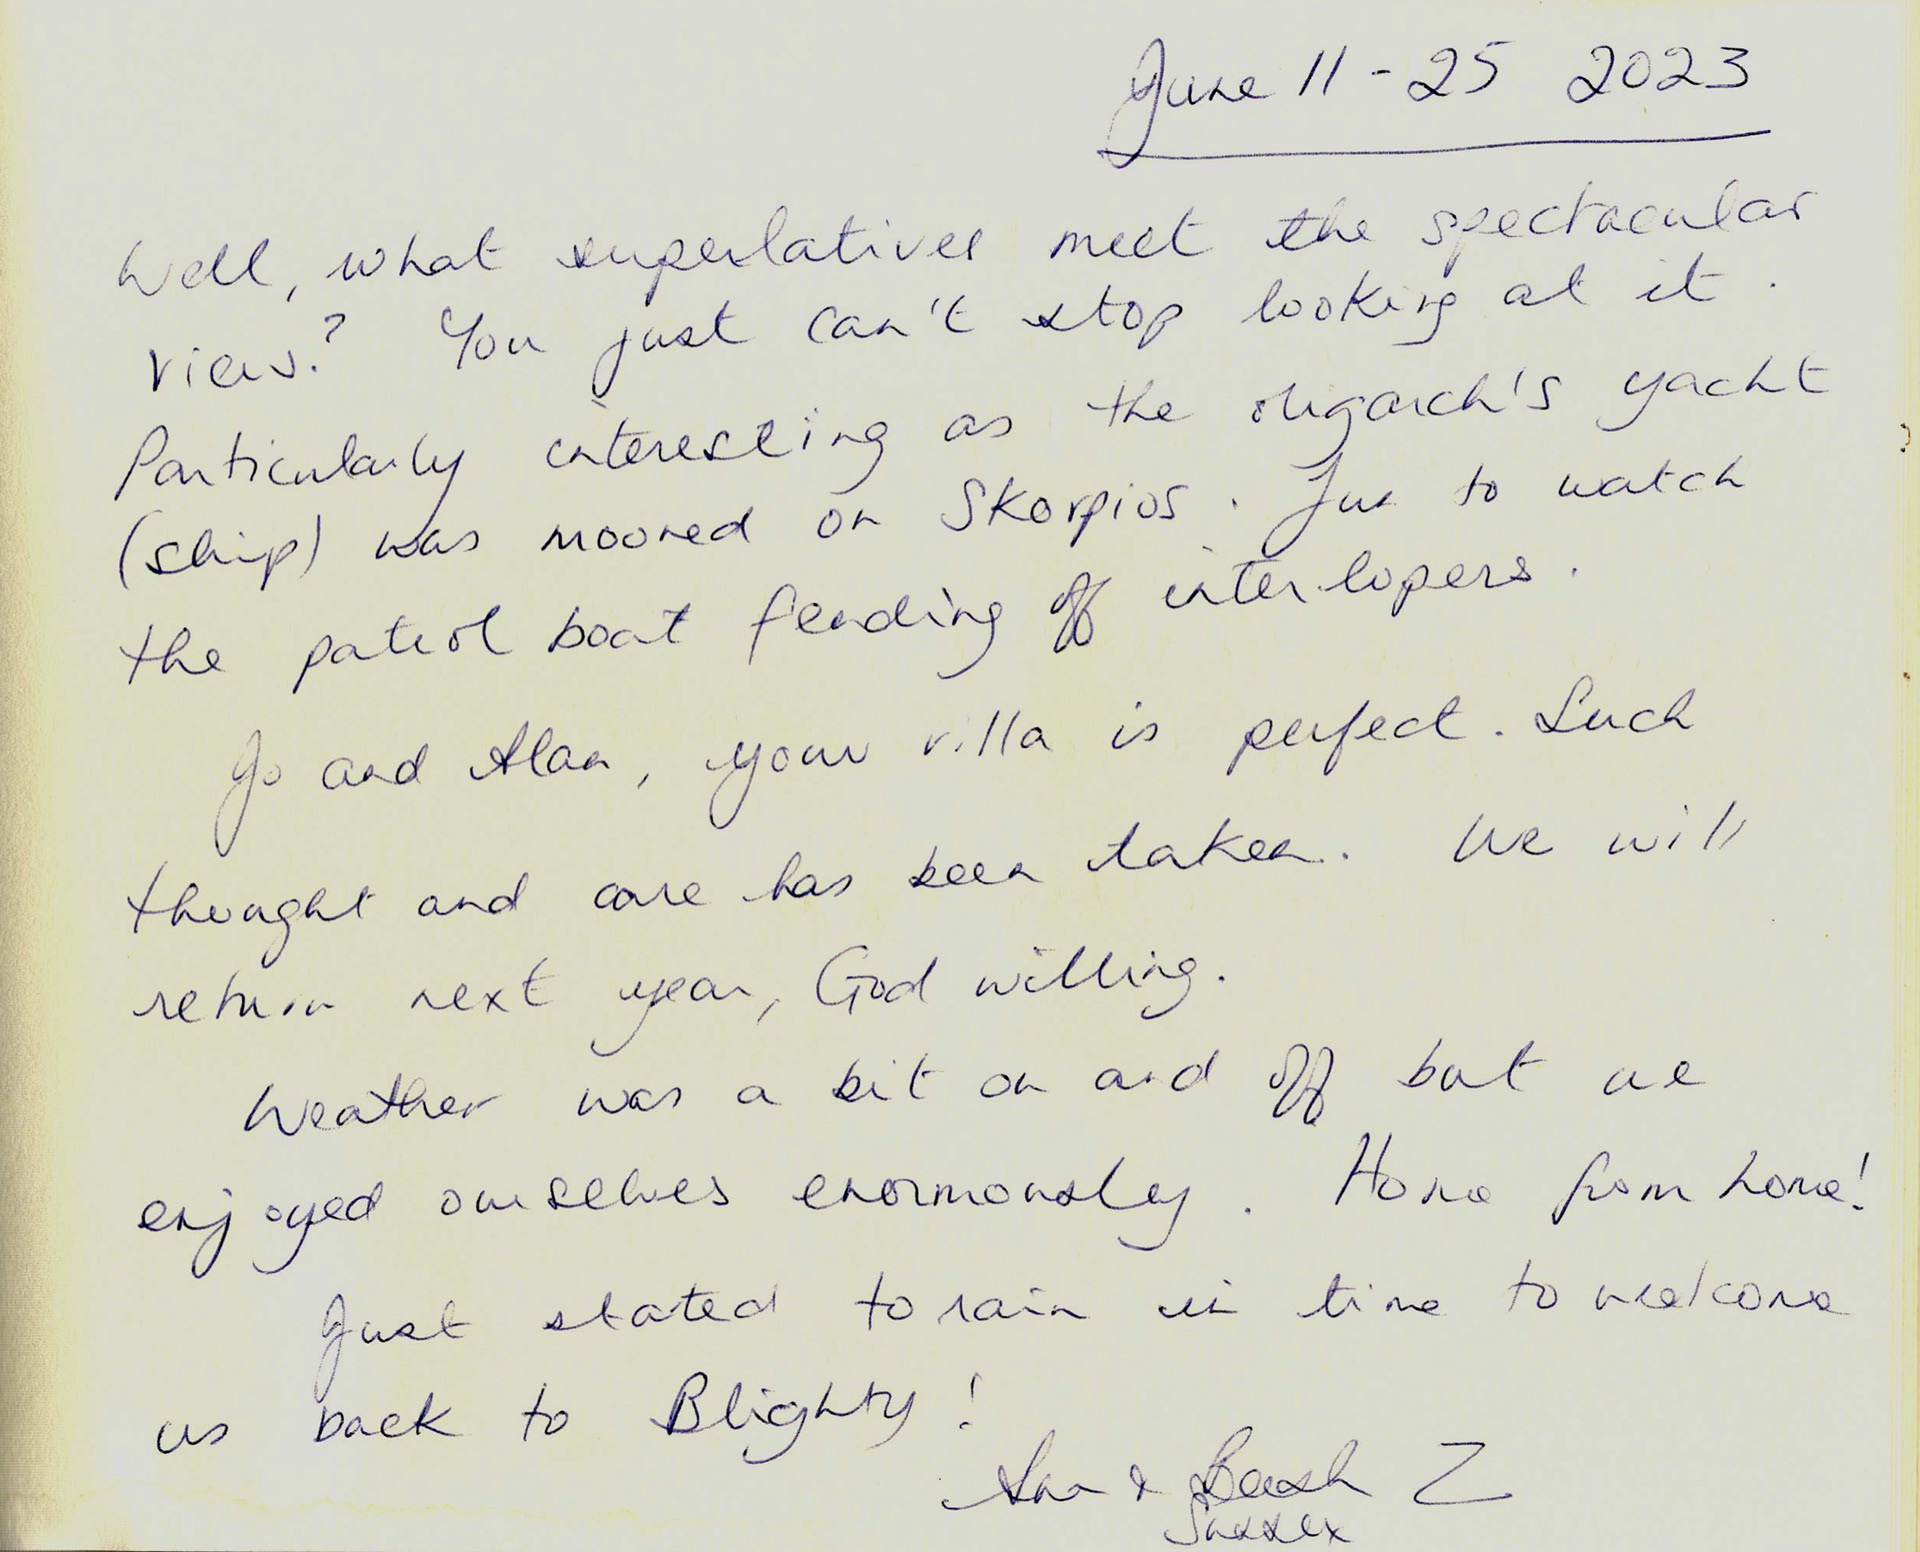 June 11 - 25 2023
Well, what superlatives meet the spectacular
view.? You just can't stop looking at it.
Particularly interesting as the oligarch's yacht
(ship) was moored on Skorpios. Fun to watch
the patrol boat fending off interlopers.
Jo and Alan, your villa is perfect. Such
thought and care has been taken. We will
return next year, God willing.
Weather was a bit on and off but we
enjoyed ourselves enormously. Home from home!
Just stated to rain in time to welcome
us back to Blighty!
& Z
Sussex